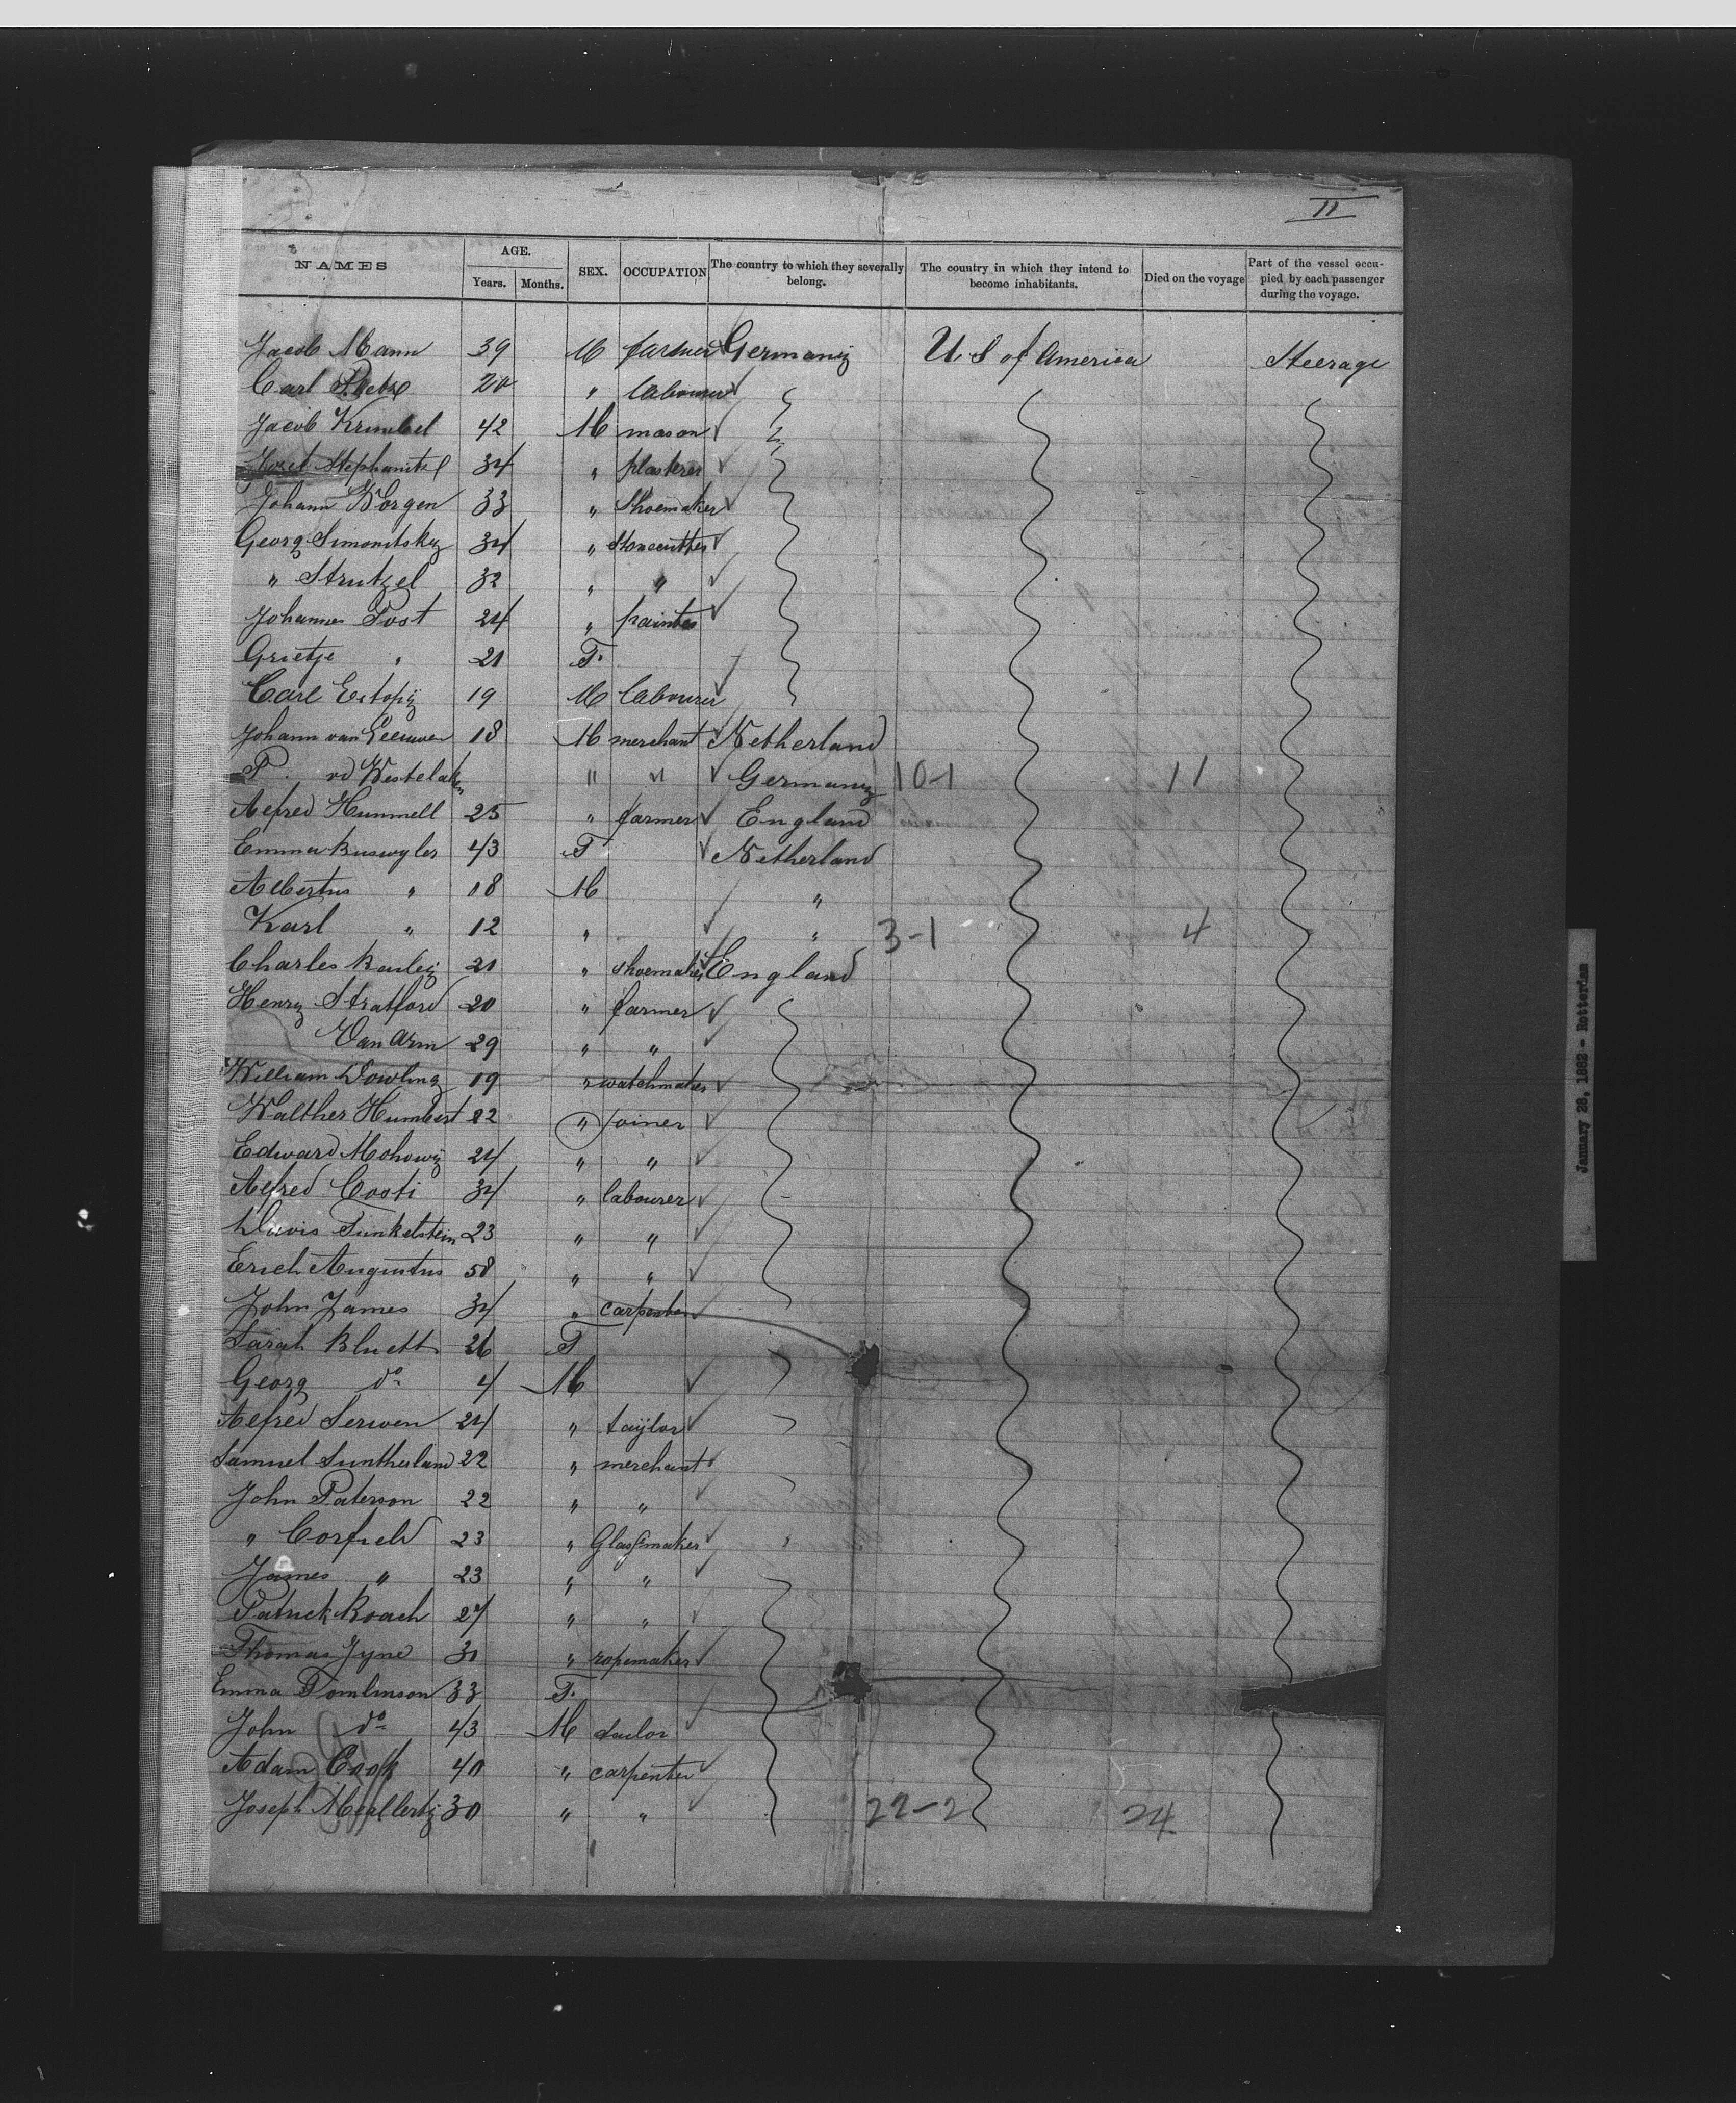 11
NAMES AGE. Years. Months. SEX. OCCUPATION The country to which they severally belong. The country in which they intend to become inhabitants. Died on the voyage Part of the vessel occupied by each passenger during the voyage.
Jacob Mann 39 M farmer Germany U. S of America Steerage
Carl 20 " labourer
Jacob Krimbel 42 M mason
Josef Stephanitsl 34 " plasterer
Johann Worgen 33 " Shoemaker
Georg Simonitsky 34 " Stonecutter
" Strutzel 32 " "
Johannes Post 24 " painter
Grietje " 21 F.
Carl 19 M labourer
Johann van Leeuwen 18 M merchant Netherland
P. vd Westelaken " " Germany 10-1 11
Alfred Hummell 25 " farmer England
Emma 43 F Netherland
Albertus " 18 M "
Karl " 12 " " 3-1 4
Charles Barley 21 " shoemaker England
Henry Stratford 20 " farmer
Van Arm 29 " "
William Dowling 19 " watchmaker
Walther Humbert 22 " joiner
Edward Mohowy 24 " "
Alfred Cooti 34 " labourer
Davis Finkelstein 23 " "
Erich Augustus 58 " "
John James 34 " carpenter
Sarah Bluett 26 F
Georg do 4 M
Alfred Serwen 24 " taÿlor
Samuel Suntherland 22 " merchant
John Paterson 22 " "
" Corfield 23 " Glassmaker
James " 23 " "
Patrick Roach 27 " "
Thomas Jyne 31 " ropemaker
Emma Tomlinson 33 F.
John do 43 M
Adam Cook 40 " carpenter
Joseph 30 " " 22-2 24
January 28, 1882 - Rotterdam